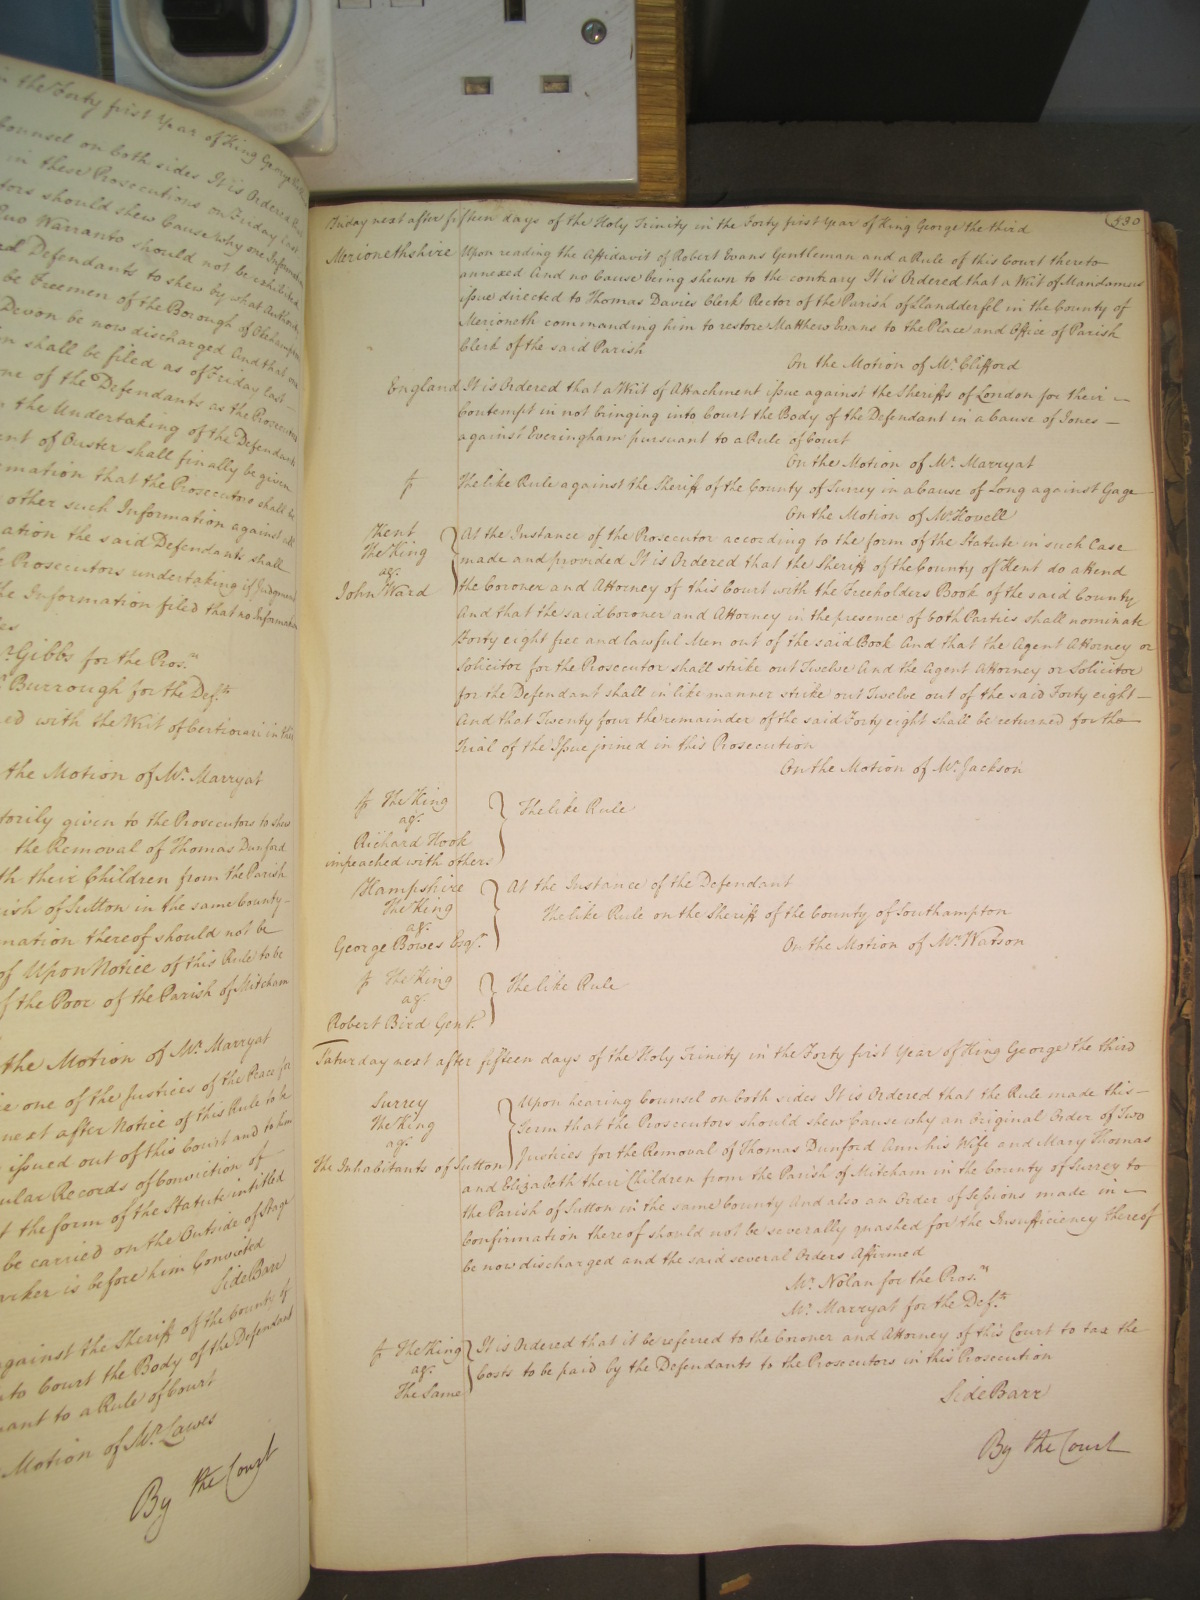 in the Forty first Year of King George
Counsel on both sides It is Ordered
in these Prosecutions on Friday last
tors should shew Cause why one Information
Quo Warranto should not be exhibited
Defendants to shew by what Authority
be Freemen of the Borough of Okehampton
Devon be now discharged And that one
shall be filed as of Friday last
one of the Defendants as the Prosecutor
the Undertaking of the Defendant
of Ouster shall finally be given
Information that the Prosecutor shall be
other such Information against all
the said Defendants shall
Prosecutors undertaking if Judgment
the Information filed that no Information
Mr. Gibbs for the Pros.rs
Burrough for the Def.ts
with the Writ of Certiorari in this
the Motion of Mr. Marryat
given to the Prosecutors to shew
the Removal of Thomas Dunford
their Children from the Parish
of Sutton in the same County
thereof should not be
of Upon Notice of this Rule to be
of the Poor of the Parish of Mitcham
the Motion of Mr. Marryat
one of the Justices of the Peace for
next after Notice of this Rule to be
issued out of this Court and to him
Records of Conviction of
the form of the Statute intitled
be carried on the Outside of Stage
is before him Convicted
Side Barr
against the Sheriff of the County of
to Court the Body of the Defendant
to a Rule of Court
Motion of Mr. Lawes
By the Court
Friday next after fifteen days of the Holy Trinity in the Forty first Year of King George the third
530
Merionethshire Upon reading the Affidavit of Robert Evans Gentleman and a Rule of this Court thereto
annexed And no Cause being shewn to the contrary It is Ordered that a Writ of Mandamus
issue directed to Thomas Davies Clerk Rector of the Parish of Llandderfel in the County of
Merioneth commanding him to restore Matthew Evans to the Place and Office of Parish
Clerk of the said Parish
On the Motion of Mr. Clifford
England It is Ordered that a Writ of Attachment issue against the Sheriffs of London for their
Contempt in not bringing into Court the Body of the Defendant in a Cause of Jones
against Everingham pursuant to a Rule of Court
On the Motion of Mr. Marryat
The like Rule against the Sheriff of the County of Surrey in a Cause of Long against Gage
On the Motion of Mr. Hovell
Kent
The King
ag.
John Ward
At the Instance of the Prosecutor according to the form of the Statute in such Case
made and provided It is Ordered that the Sheriff of the County of Kent do attend
the Coroner and Attorney of this Court with the Freeholders Book of the said County
And that the said Coroner and Attorney in the presence of both Parties shall nominate
Forty eight free and lawful Men out of the said Book And that the Agent Attorney or
Solicitor for the Prosecutor shall strike out Twelve And the Agent Attorney or Solicitor
for the Defendant shall in like manner strike out Twelve out of the said Forty eight
And that Twenty four the remainder of the said Forty eight shall be returned for the
Trial of the Issue joined in this Prosecution
On the Motion of Mr. Jackson
The King
ag.
Richard Hook
impeached with others
The like Rule
Hampshire
The King
ag.
George Bowes Esq.r
At the Instance of the Defendant
The like Rule on the Sheriff of the County of Southampton
On the Motion of Mr. Watson
The King
ag.
Robert Bird Gent.
The like Rule
Saturday next after fifteen days of the Holy Trinity in the Forty first Year of King George the third
Surrey
The King
ag.
The Inhabitants of Sutton
Upon hearing Counsel on both sides It is Ordered that the Rule made this
Term that the Prosecutors should shew Cause why an Original Order of Two
Justices for the Removal of Thomas Dunford Ann his Wife and Mary Thomas
and Elizabeth their Children from the Parish of Mitcham in the County of Surrey to
the Parish of Sutton in the same County And also an Order of Sessions made in
Confirmation thereof should not be severally quashed for the Insufficiency thereof
be now discharged and the said several Orders Affirmed
Mr. Nolan for the Pros.rs
Mr. Marryat for the Def.ts
The King
ag.
The Same
It is Ordered that it be referred to the Coroner and Attorney of this Court to tax the
Costs to be paid by the Defendants to the Prosecutors in this Prosecution
Side Barr
By the Court